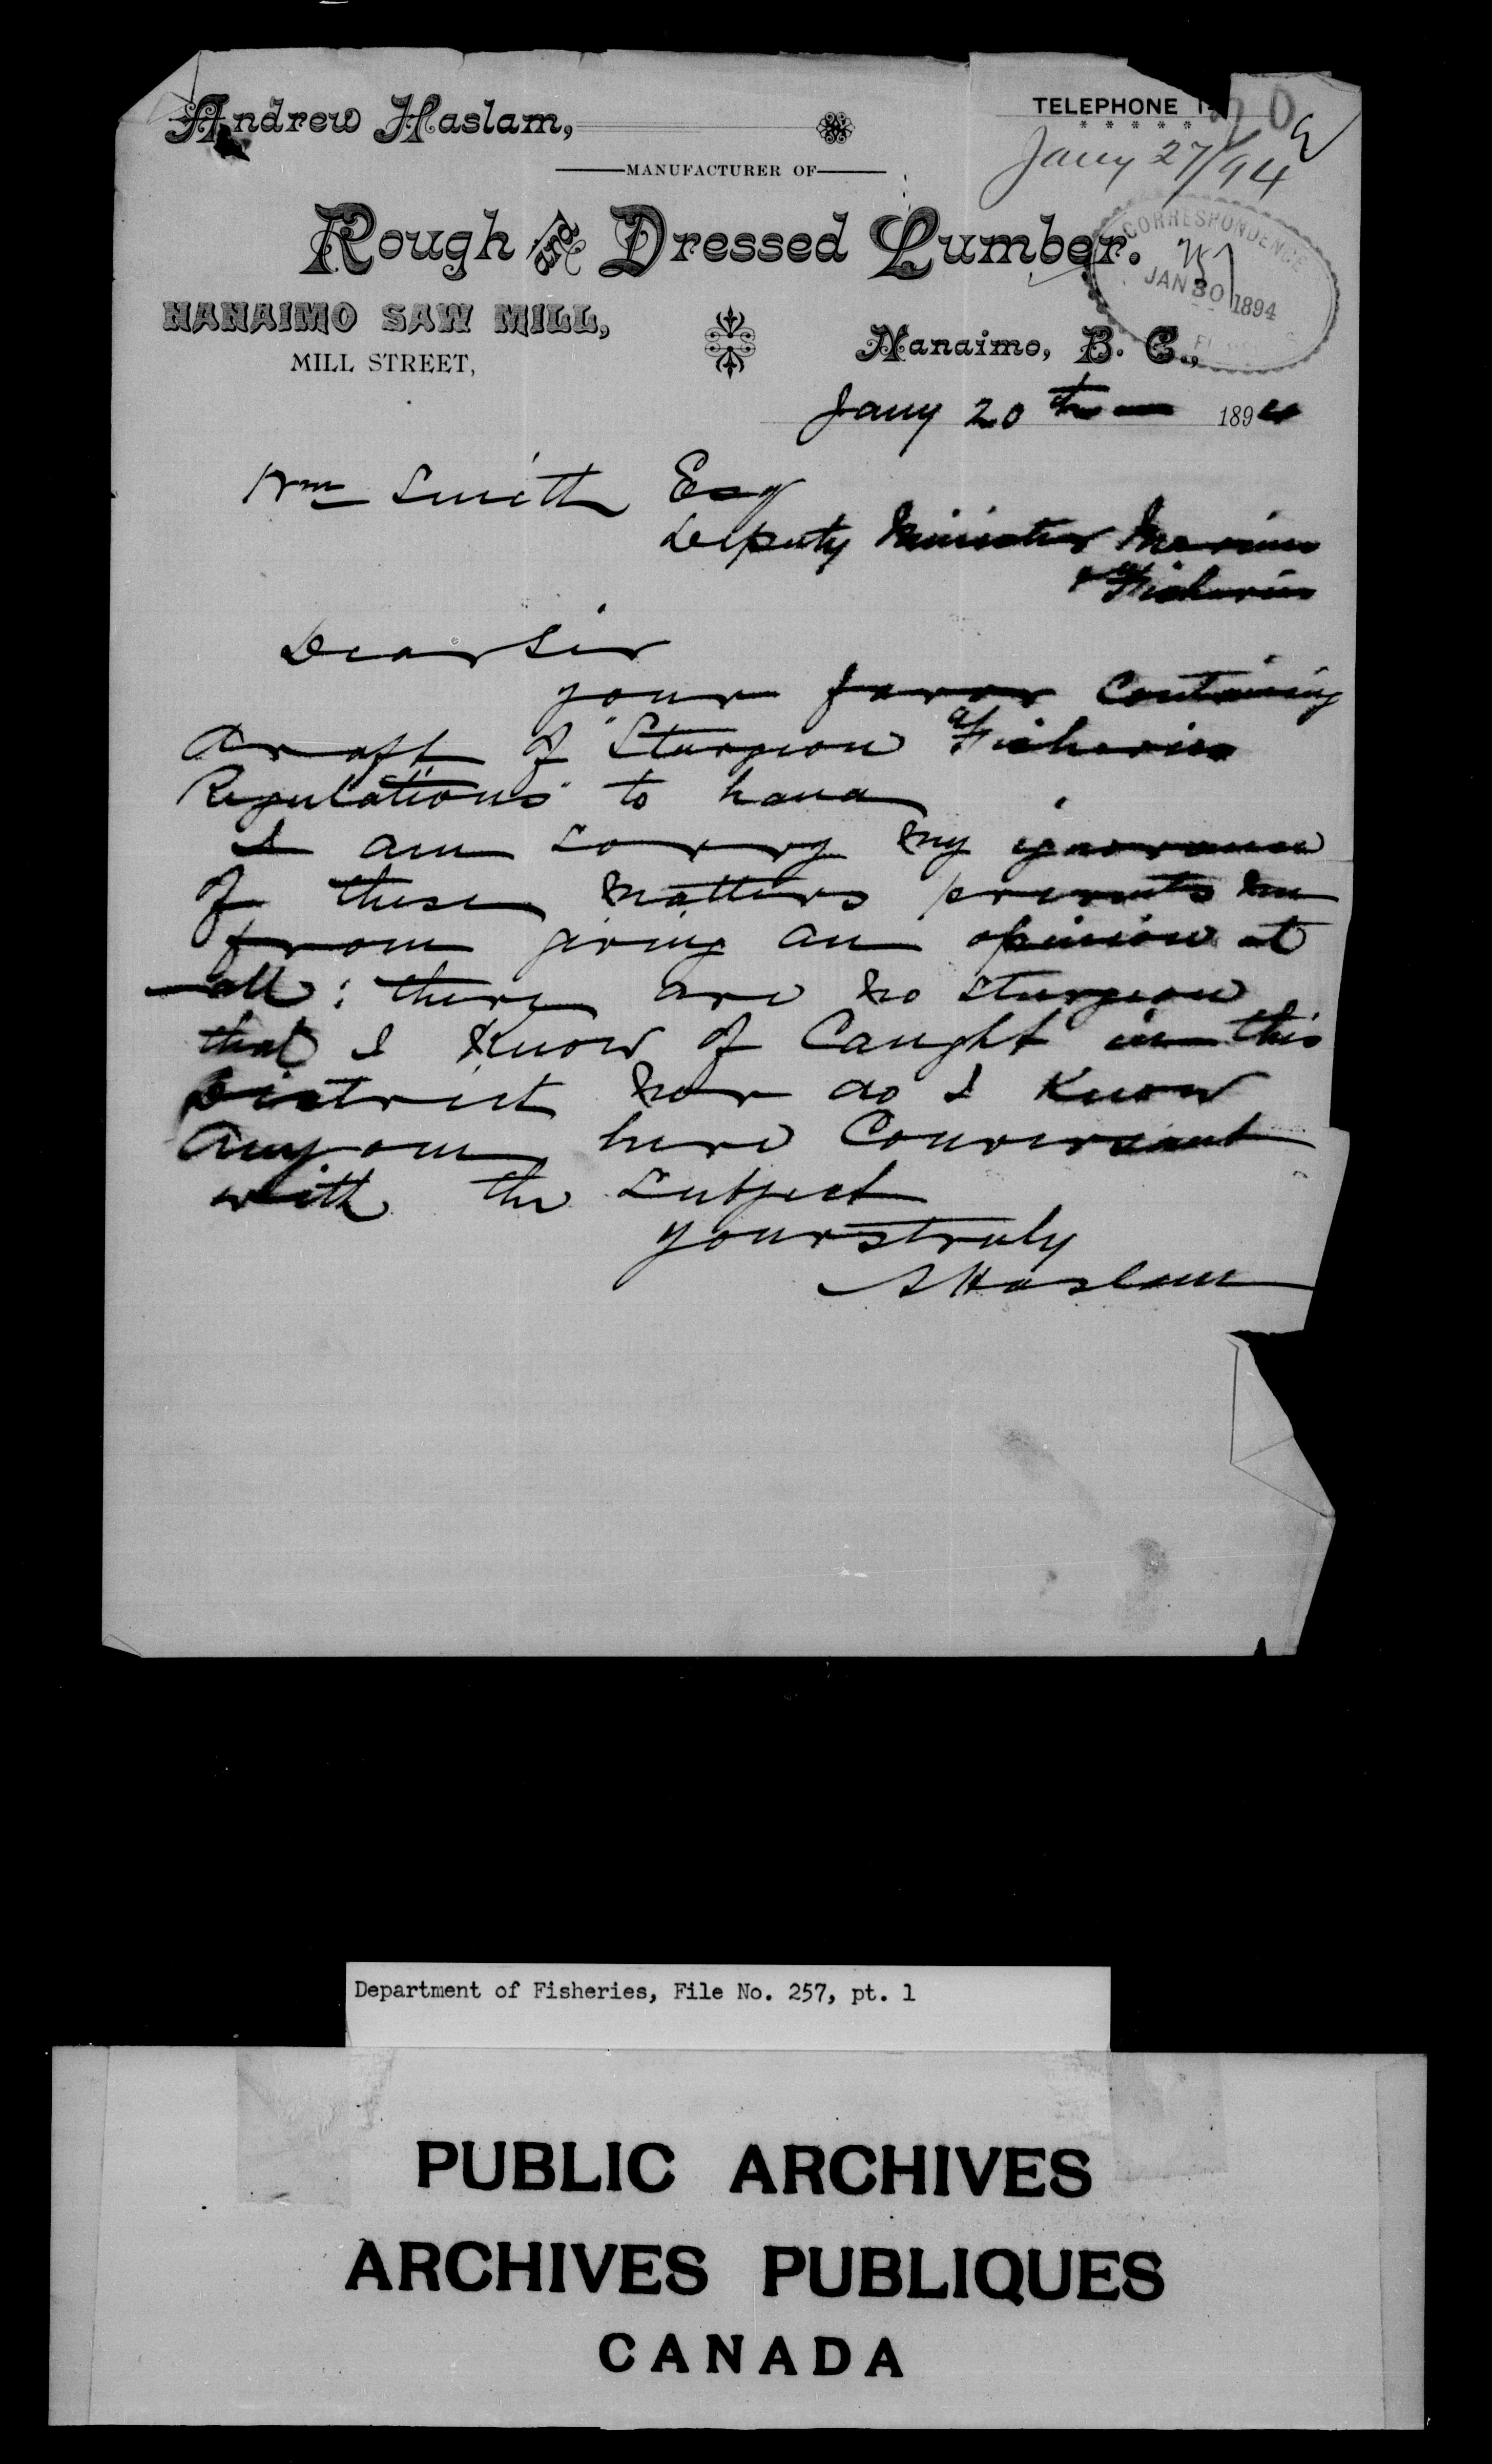 Andrew Haslam,
TELEPHONE 1-
20
Jany 27/94
MANUFACTURER OF
Rough and Dressed Lumber.
CORRESPONDENCE
JAN 30 1894
NANAIMO SAW MILL,
MILL STREET,
Nanaimo, B. C.,
Jany 20th 1894
Wm Smith Esq
Deputy Minister Marine
& Fisheries
Dear Sir
your favor Containing
draft of "Sturgeon Fisheries
Regulations" to hand
I am sorry my ignorance
of these matters prevents me
from giving an opinion at
all: there are no sturgeon
that I Know of Caught in this
District nor do I Know
anyone here Conversant
with the subject
yours truly
A Haslam
Department of Fisheries, File No. 257, pt. 1
PUBLIC ARCHIVES
ARCHIVES PUBLIQUES
CANADA